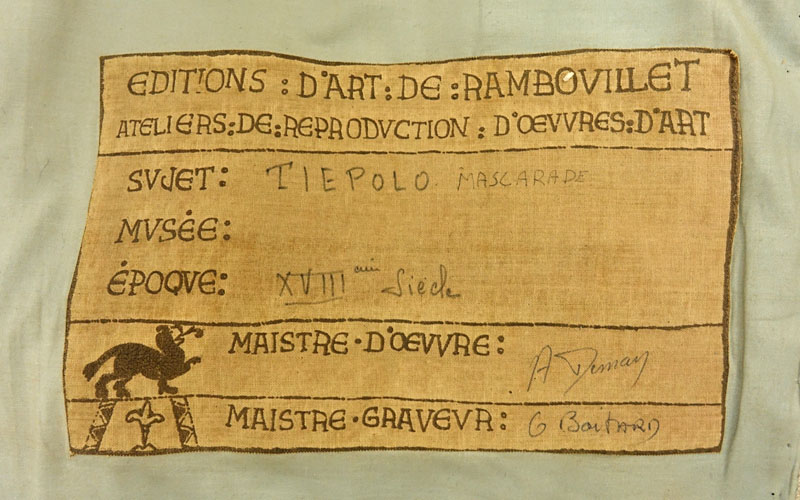 EDITIONS : D'ART : DE : RAMBOVILLET
ATELIERS : DE : REPRODVCTION : D'ŒVVRES : D'ART
SVJET : TIEPOLO. MASCARADE
MVSÉE :
ÉPOQVE : XVIII ème Siècle
MAISTRE · D'ŒVVRE : A Deman
MAISTRE · GRAVEVR : G Boitard